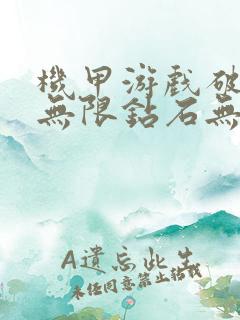 機甲游戲破
無限鉆石無
A遺忘此生
未經同意禁止轉載